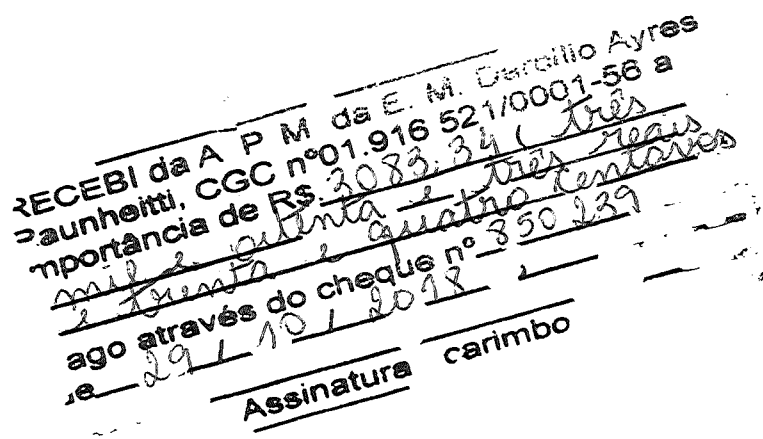 RECEBI da A P M da E. M. Darcillo Ayres
Raunheitti, CGC nº01.916 521/0001-56 a
importância de R$. 3083,34 ( três
mil e oitenta e três reais
e trenta e quatro centavos
ago através do cheque nº 850 239
e 29 / 10 / 2018
Assinatura carimbo